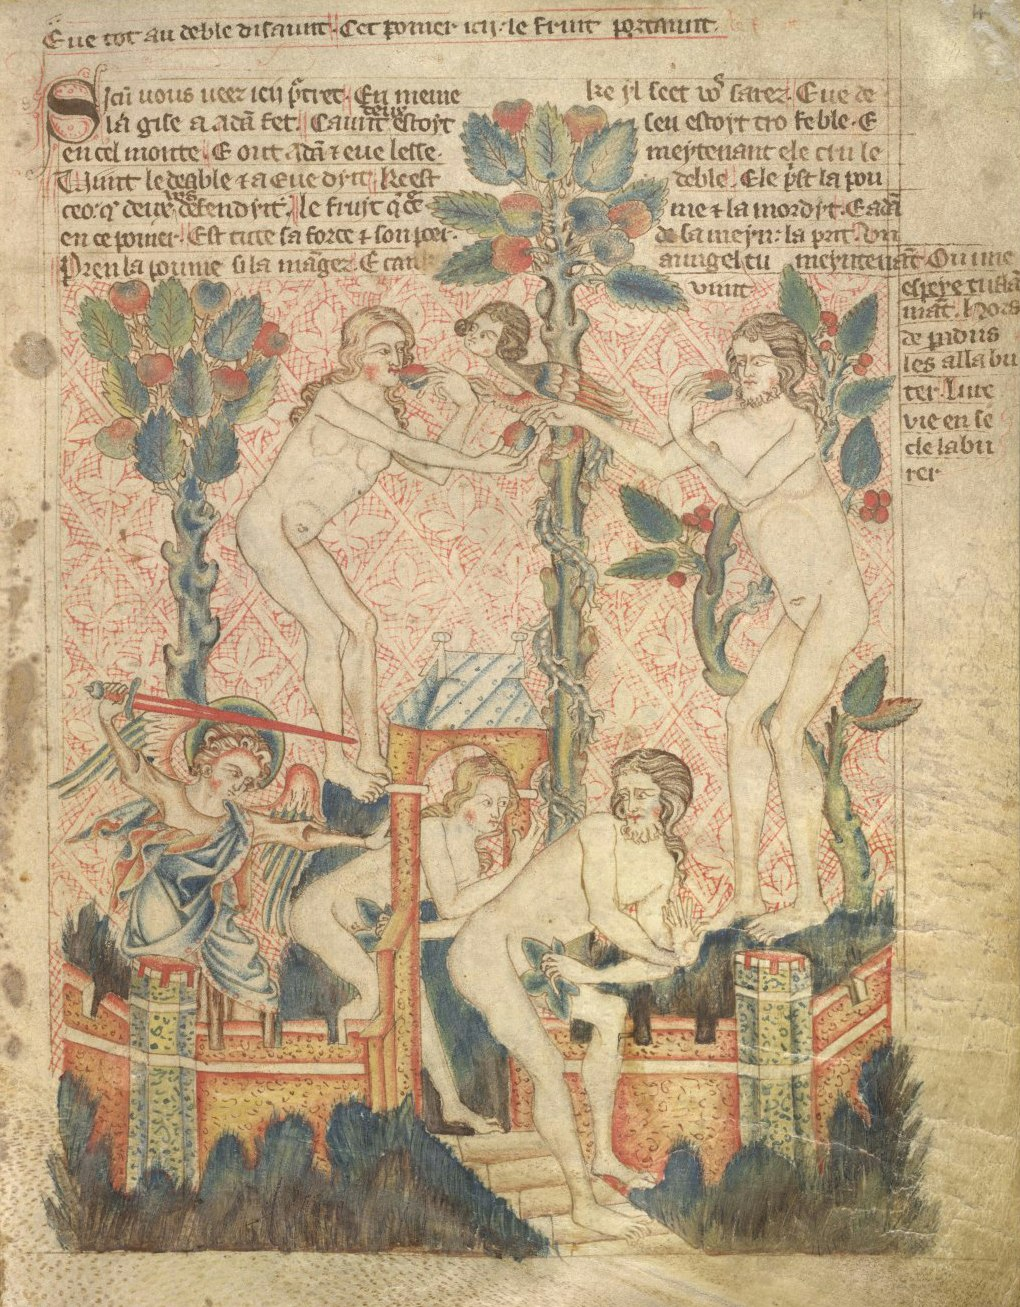 Eue tot au deble disaunt. Cet pomer icy. le fruit portaunt.
Sicū vous ueez icy p̄tret. En meme
la gise a adā fet. Caunt deus estoyt
en cel monte. E out adā ⁊ eue lesse.
Vint le deable ⁊ a Eue dyt. Ke est
ceo. q̄ deu vus defendyt. le fruyt q̄
en ce pomer. Est tute sa force ⁊ son poer.
Pren la pomme si la māgez. E tant
ke yl seet vo⁹ sarez. Eue de
seu estoyt tro feble. E
meytenant ele cru le
deble. Ele p̄st la pom
me ⁊ la mordyt. E adā
de sa meyn: la prit. Un
aungel meyntenāt. Ou une
vint
espeye
māt. hors
de
les alla bu
ter. lure
vie en se
cle labu
rer